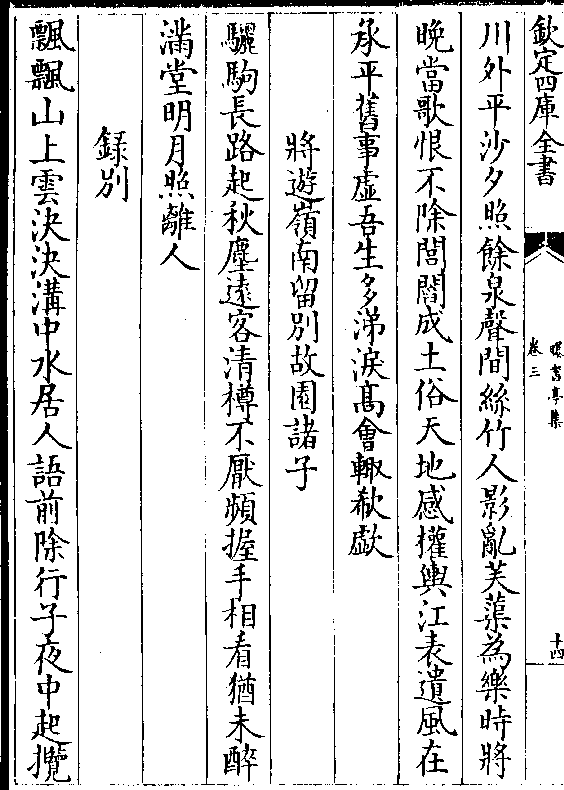 欽定四庫全書
曝書亭集
卷三
十四
川外平沙夕照餘泉聲間絲竹人影亂芙蕖為樂時將
晚當歌恨不除閭閻成土俗天地感權輿江表遺風在
承平舊事虛吾生多涕淚髙會輙欷歔
將遊嶺南留別故園諸子
驪駒長路起秋塵逺客清樽不厭頻握手相看猶未醉
滿堂明月照離人
録别
飄飄山上雲決決溝中水居人語前除行子夜中起攬